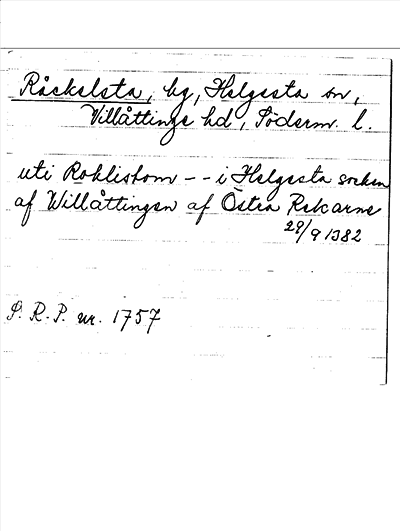 Råckelsta, by, Helgesta sn,
Villåttinge hd, Söderm. l.
uti Roklistom -- i Helgesta socken
af Willåttingen af Östra Rekarne
29/9 1382
S. R. P. nr. 1757